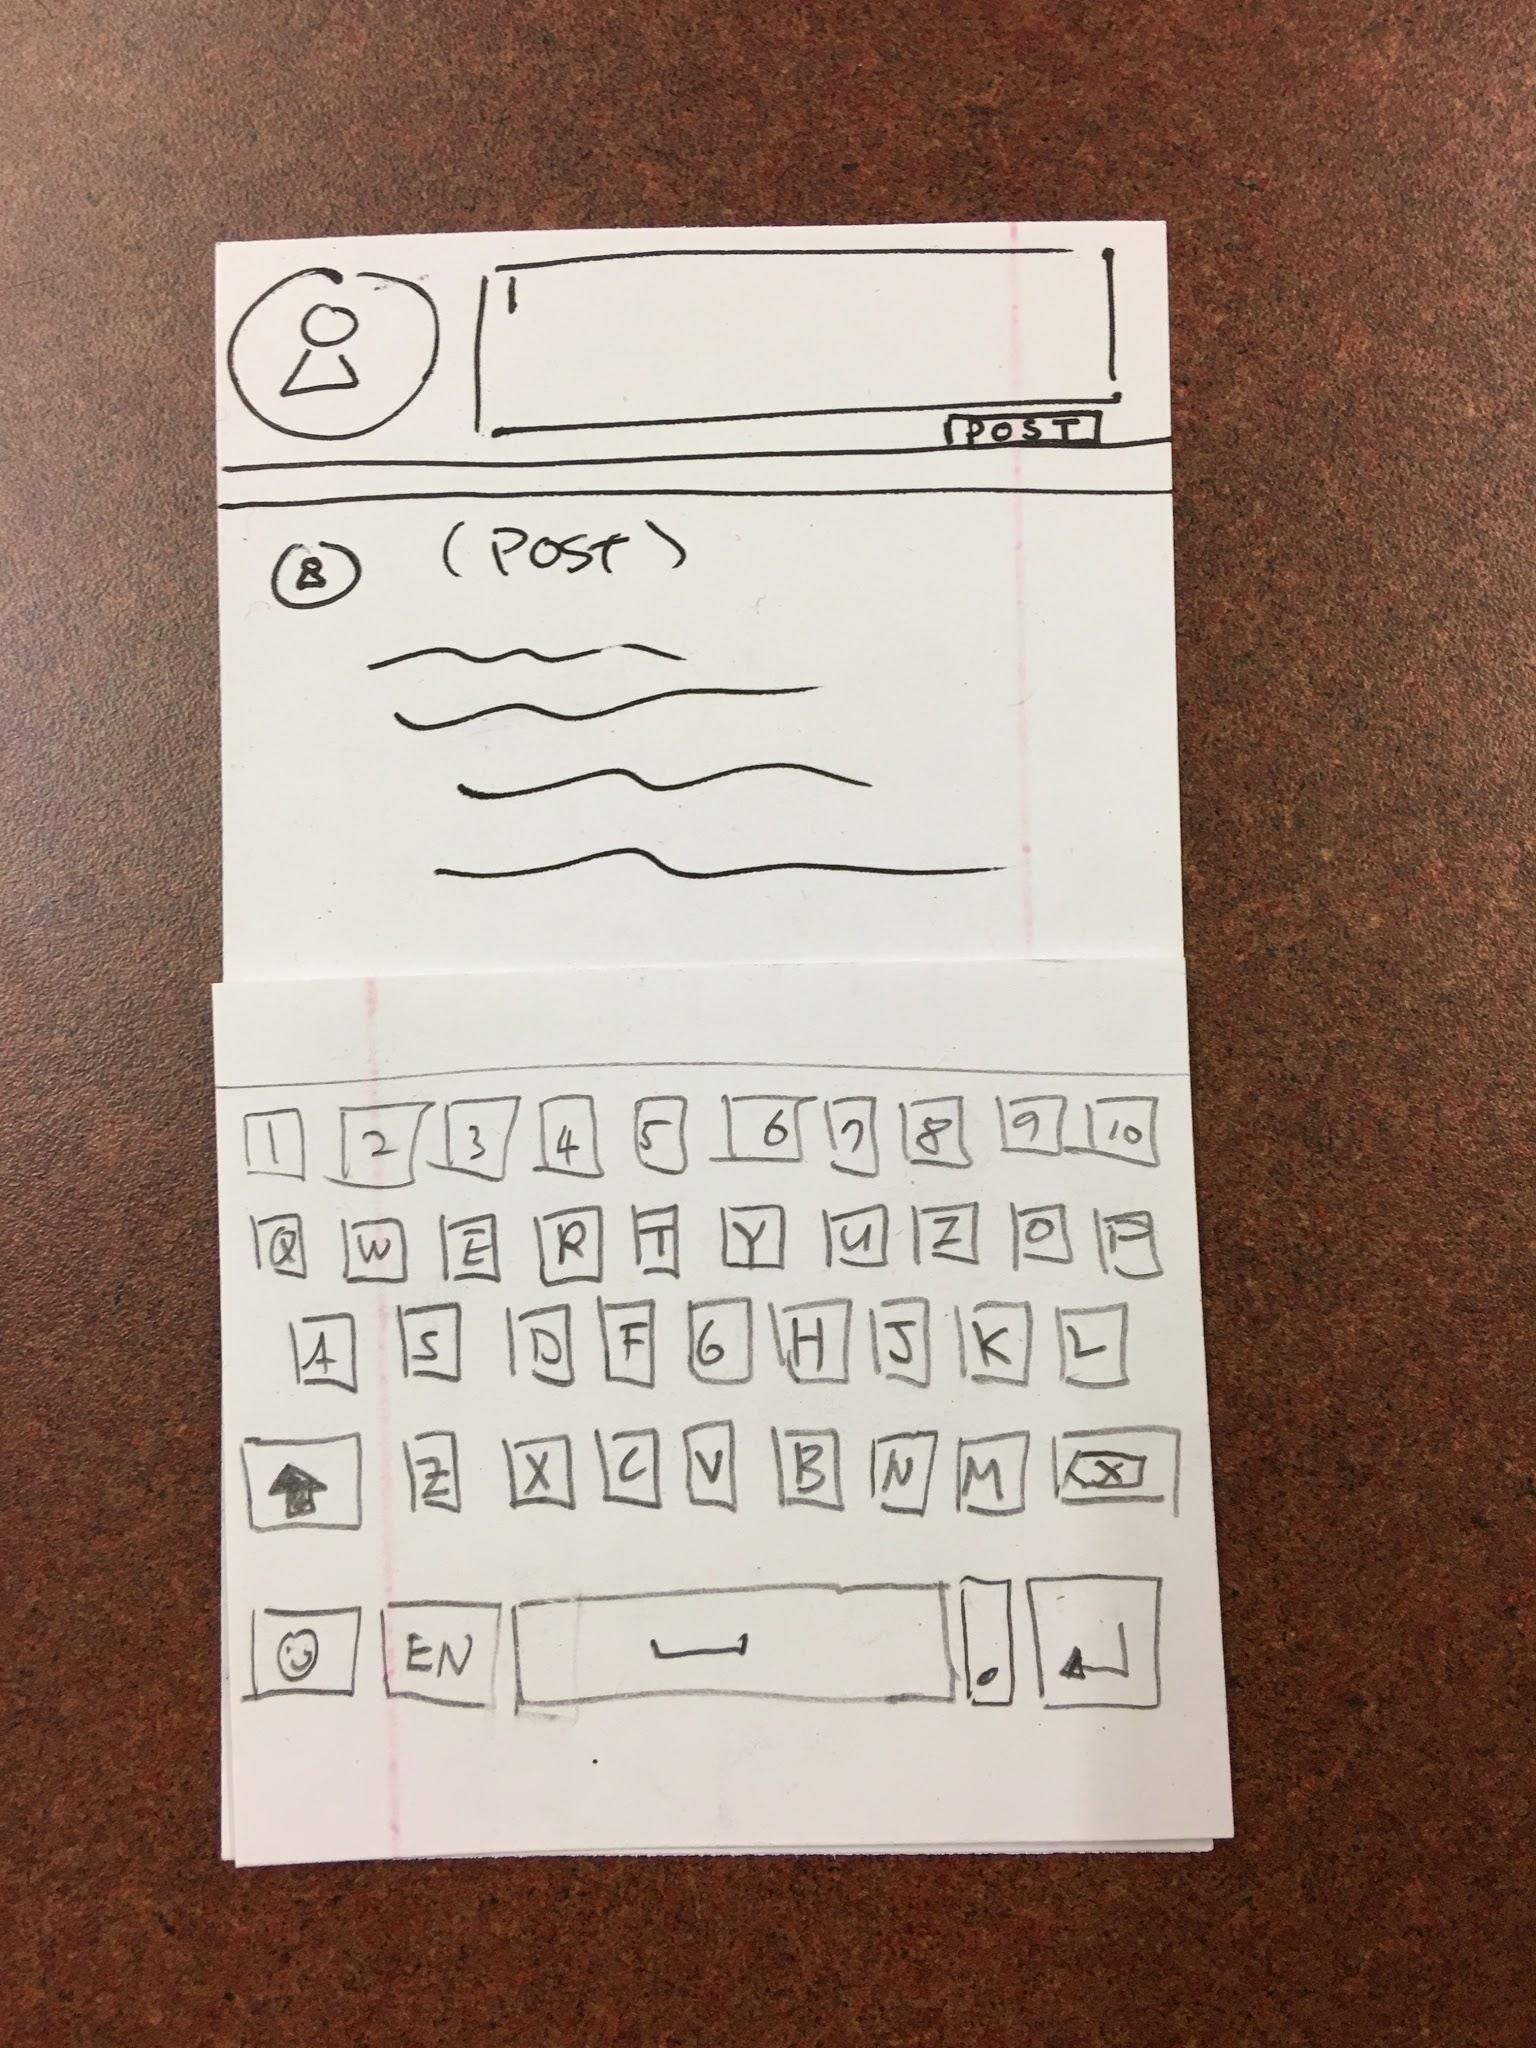 POST
(POST)
1 2 3 4 5 6 7 8 9 10
Q W E R T Y U Z O P
A S D F G H J K L
Z X C V B N M X
EN .